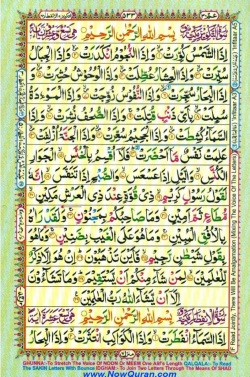 عم ٣٠
٥٣٣
بِسْمِ اللّٰهِ الرَّحْمٰنِ الرَّحِيْمِ
اِذَا الشَّمْسُ كُوِّرَتْ وَاِذَا النُّجُوْمُ انْكَدَرَتْ وَاِذَا الْجِبَالُ
سُيِّرَتْ وَاِذَا الْعِشَارُ عُطِّلَتْ وَاِذَا الْوُحُوْشُ حُشِرَتْ وَاِذَا
الْبِحَارُ سُجِّرَتْ وَاِذَا النُّفُوْسُ زُوِّجَتْ وَاِذَا الْمَوْءٗدَةُ
سُئِلَتْ بِاَيِّ ذَنْبٍ قُتِلَتْ وَاِذَا الصُّحُفُ نُشِرَتْ وَاِذَا
السَّمَآءُ كُشِطَتْ وَاِذَا الْجَحِيْمُ سُعِّرَتْ وَاِذَا الْجَنَّةُ اُزْلِفَتْ
عَلِمَتْ نَفْسٌ مَّآ اَحْضَرَتْ فَلَآ اُقْسِمُ بِالْخُنَّسِ الْجَوَارِ
الْكُنَّسِ وَالَّيْلِ اِذَا عَسْعَسَ وَالصُّبْحِ اِذَا تَنَفَّسَ اِنَّهٗ
لَقَوْلُ رَسُوْلٍ كَرِيْمٍ ذِيْ قُوَّةٍ عِنْدَ ذِي الْعَرْشِ مَكِيْنٍ
مُّطَاعٍ ثَمَّ اَمِيْنٍ وَمَا صَاحِبُكُمْ بِمَجْنُوْنٍ وَلَقَدْ رَاٰهُ
بِالْاُفُقِ الْمُبِيْنِ وَمَا هُوَ عَلَى الْغَيْبِ بِضَنِيْنٍ وَمَا هُوَ
بِقَوْلِ شَيْطٰنٍ رَّجِيْمٍ فَاَيْنَ تَذْهَبُوْنَ اِنْ هُوَ اِلَّا ذِكْرٌ
لِّلْعٰلَمِيْنَ لِمَنْ شَآءَ مِنْكُمْ اَنْ يَّسْتَقِيْمَ وَمَا تَشَآءُوْنَ
اِلَّآ اَنْ يَّشَآءَ اللّٰهُ رَبُّ الْعٰلَمِيْنَ
بِسْمِ اللّٰهِ الرَّحْمٰنِ الرَّحِيْمِ
اِذَا السَّمَآءُ انْفَطَرَتْ وَاِذَا الْكَوَاكِبُ انْتَثَرَتْ وَاِذَا الْبِحَارُ
GHUNNA:- To Stretch The Voice Of NOON Or MEEM One Alif's Length QALQALA:- To Read
The SAKIN Letters With Bounce IDGHAM:- To Join Two Letters Through The Means Of SHAD
www.NowQuran.com